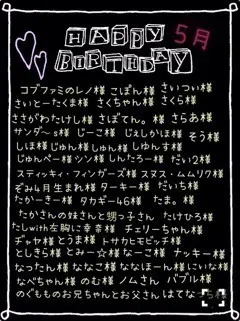 HAPPY 5月
BIRTHDAY
コブファミのレノ様 こぽん様 さいつい様
さいとーたくま様 さくちゃん様 さくら様
ささがわたけし様 さぼてん。様 さらあ様
サンダ〜s様 じーこ様 じぇしかほ様 そう様
しほ様 じゅん様 しゅん様 しゅんす様
じゅんぺー様 シン様 しんたろー様 だい2様
スティッキィ・フィンガーズ様 スヌス・ムムリク様
ぞみ4月生まれ様 ターキー様 だいち様
たかーきー様 タカギー46様 たま。様
たかさんの妹さんと甥っ子さん たけひろ様
たしwith左胸に幸奈様 チェリーちゃん様
ヂャヤ様 とうま様 トサカヒモビッチ様
としきら様 とみー☆様 なーこ様 ナッキー様
なったん様 ななこ様 ななほーん様 にいな様
なべちゃん様 のむ様 ノムさん バブル様
のぐもものお兄ちゃんとお父さん はてなっち様